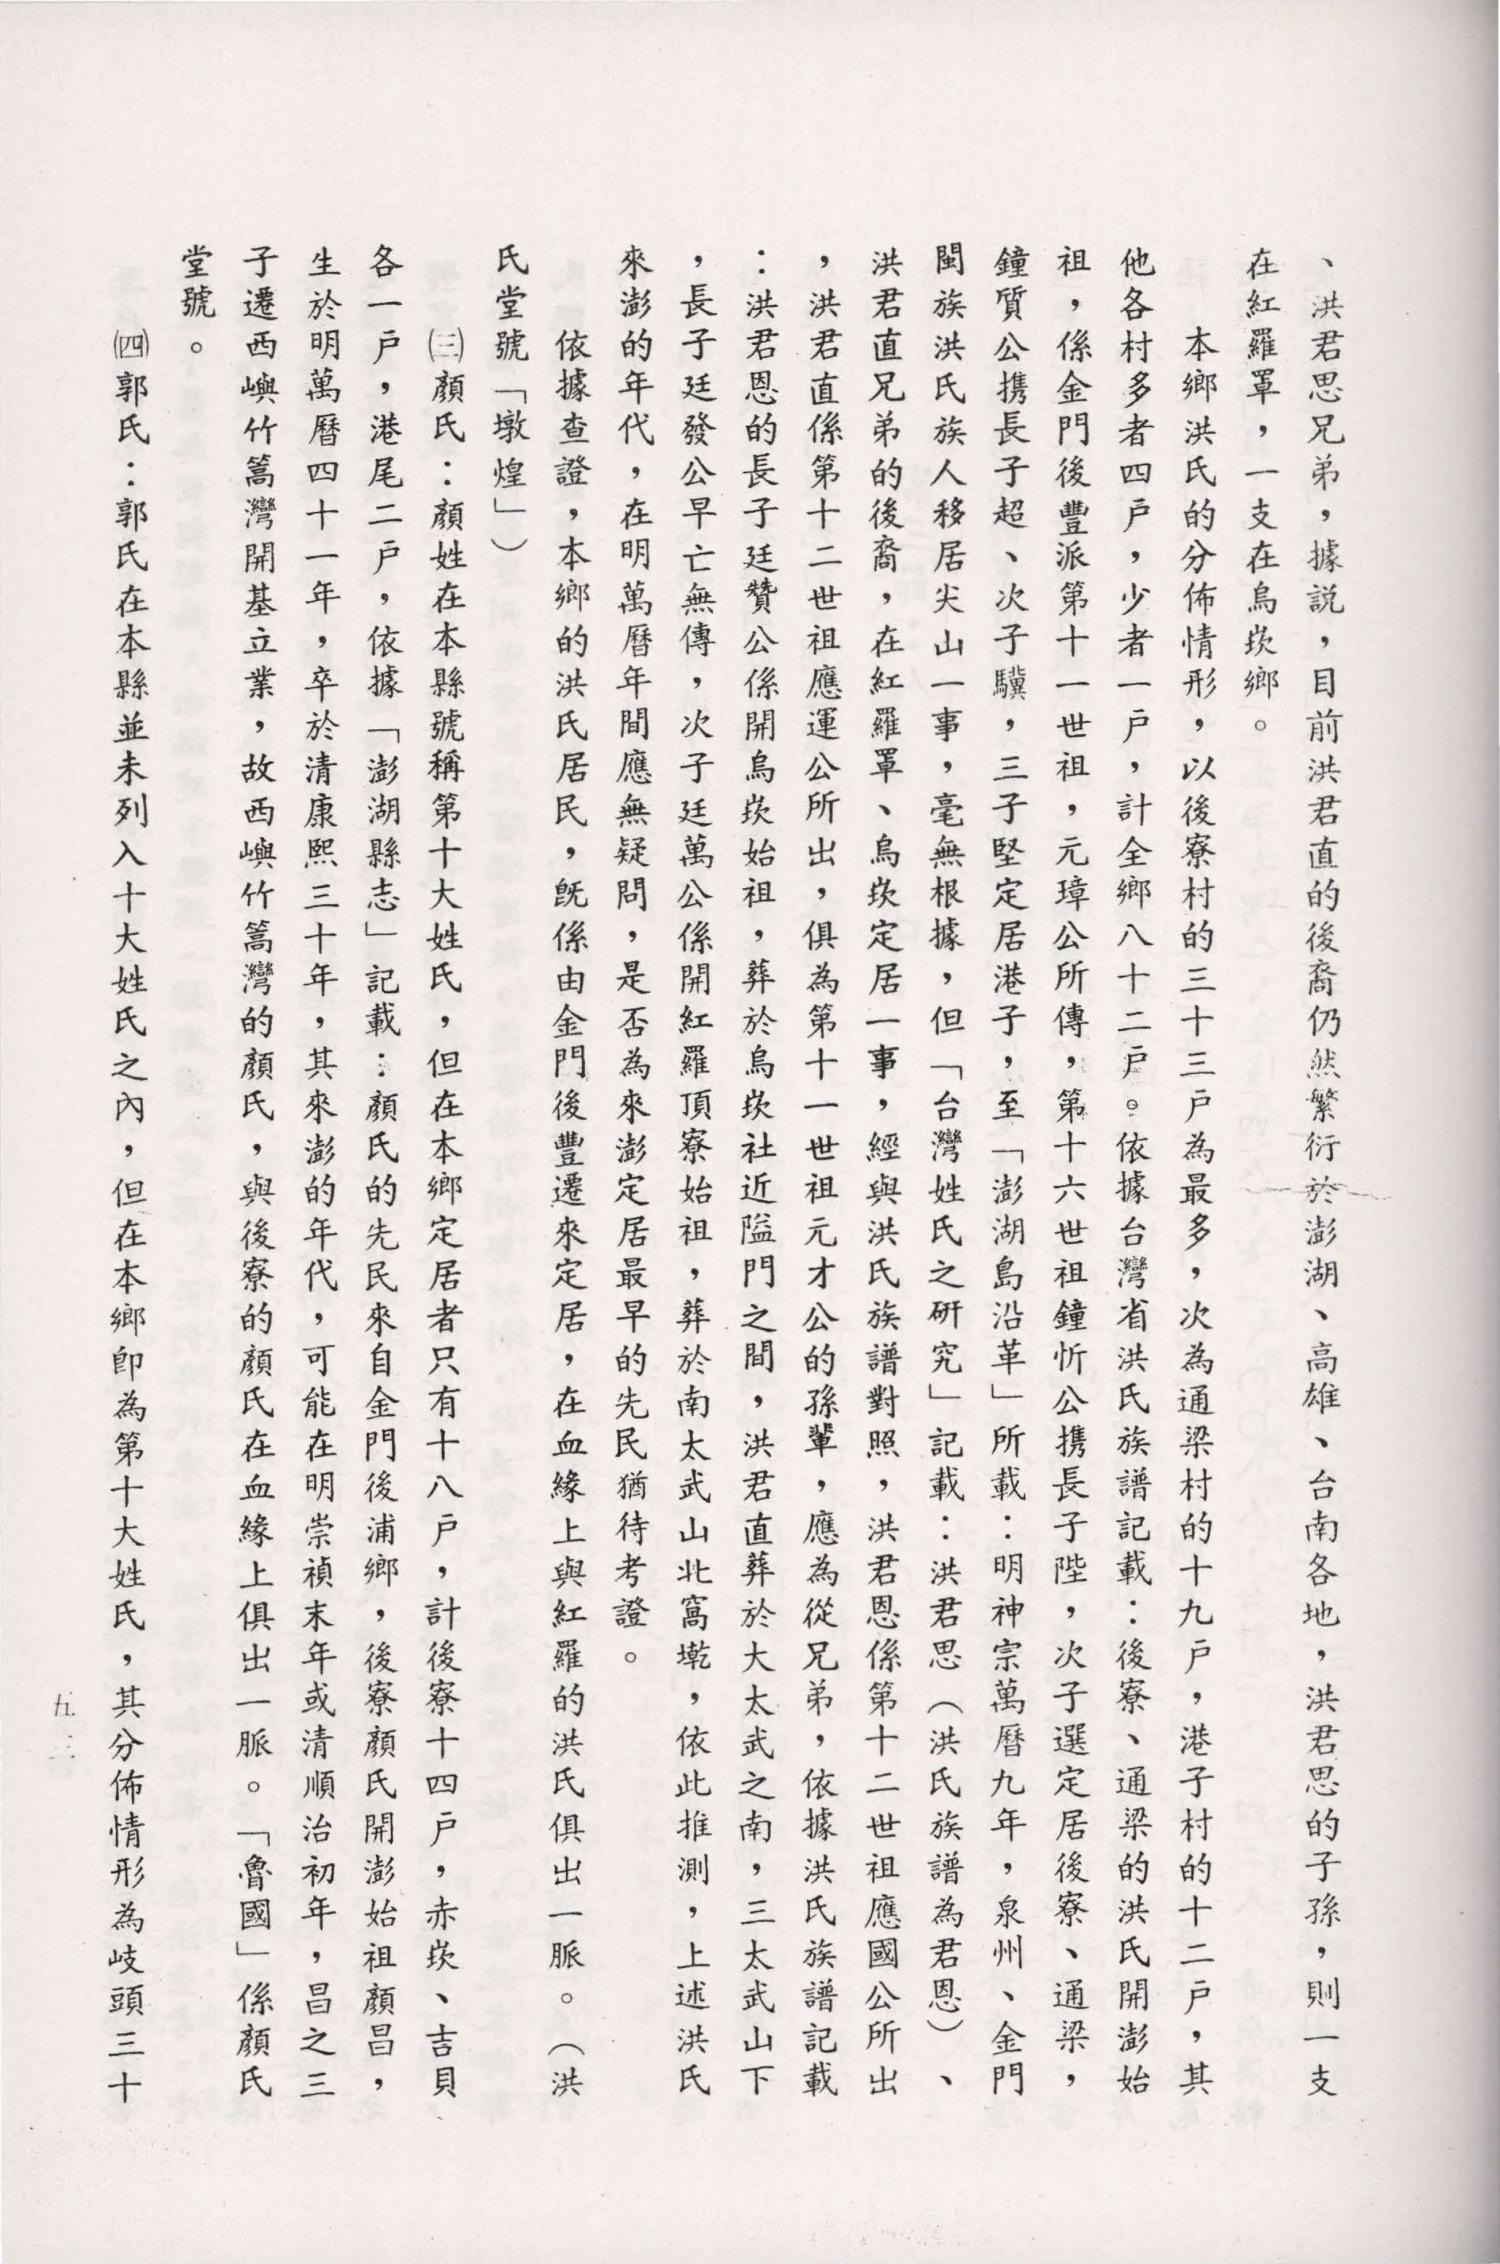 、洪君思兄弟，據說，目前洪君直的後裔仍然繁衍於澎湖、高雄、台南各地，洪君思的子孫，則一支
在紅羅罩，一支在烏崁鄉。
本鄉洪氏的分佈情形，以後寮村的三十三戶為最多，次為通梁村的十九戶，港子村的十二戶，其
他各村多者四戶，少者一戶，計全鄉八十二戶。依據台灣省洪氏族譜記載：後寮、通梁的洪氏開澎始
祖，係金門後豐派第十一世祖，元璋公所傳，第十六世祖鐘忻公携長子陛，次子選定居後寮、通梁，
鐘質公携長子超、次子驥，三子堅定居港子，至「澎湖島沿革」所載：明神宗萬曆九年，泉州、金門
閩族洪氏族人移居尖山一事，毫無根據，但「台灣姓氏之研究」記載：洪君思（洪氏族譜為君恩）、
洪君直兄弟的後裔，在紅羅罩、烏崁定居一事，經與洪氏族譜對照，洪君恩係第十二世祖應國公所出
，洪君直係第十二世祖應運公所出，俱為第十一世祖元才公的孫輩，應為從兄弟，依據洪氏族譜記載
：洪君恩的長子廷贊公係開烏崁始祖，葬於烏崁社近隘門之間，洪君直葬於大太武之南，三太武山下
，長子廷發公早亡無傳，次子廷萬公係開紅羅頂寮始祖，葬於南太武山北窩墘，依此推測，上述洪氏
來澎的年代，在明萬曆年間應無疑問，是否為來澎定居最早的先民猶待考證。
依據查證，本鄉的洪氏居民，既係由金門後豐遷來定居，在血緣上與紅羅的洪氏俱出一脈。（洪
氏堂號「墩煌」）
㈢顏氏：顏姓在本縣號稱第十大姓氏，但在本鄉定居者只有十八戶，計後寮十四戶，赤崁、吉貝
各一戶，港尾二戶，依據「澎湖縣志」記載：顏氏的先民來自金門後浦鄉，後寮顏氏開澎始祖顏昌，
生於明萬曆四十一年，卒於清康熙三十年，其來澎的年代，可能在明崇禎末年或清順治初年，昌之三
子遷西嶼竹篙灣開基立業，故西嶼竹篙灣的顏氏，與後寮的顏氏在血緣上俱出一脈。「魯國」係顏氏
堂號。
㈣郭氏：郭氏在本縣並未列入十大姓氏之內，但在本鄉即為第十大姓氏，其分佈情形為岐頭三十